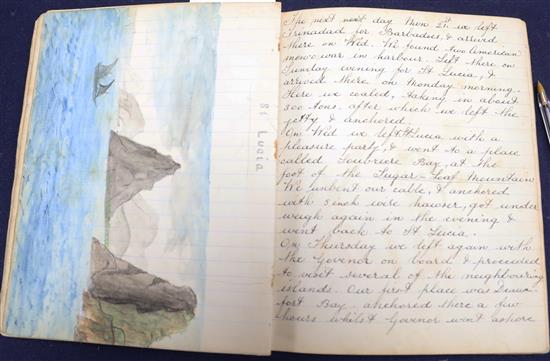 St Lucia
The next next day then 21st we left
Trinadad for Barbadoes, & arrived
there on Wed. We found two American
men o war in harbour. Left there on
Sunday evening for St Lucia, &
arrived there on Monday morning.
Here we coaled, taking in about
300 tons, after which we left the
jetty & anchored.
On Wed we left St Lucia with a
pleasure party, & went to a place
called Soubriere Bay, at the
foot of the Sugar-Loaf Mountain
We unbent our cable, & anchored
with 5 inch wire hawser, got under
weigh again in the evening &
went back to St Lucia.
On Thursday we left again with
the Govenor on board & proceeded
to visit several of the neighbouring
islands. Our first place was
fort Bay. anchored there a few
hours whilst Govenor went ashore